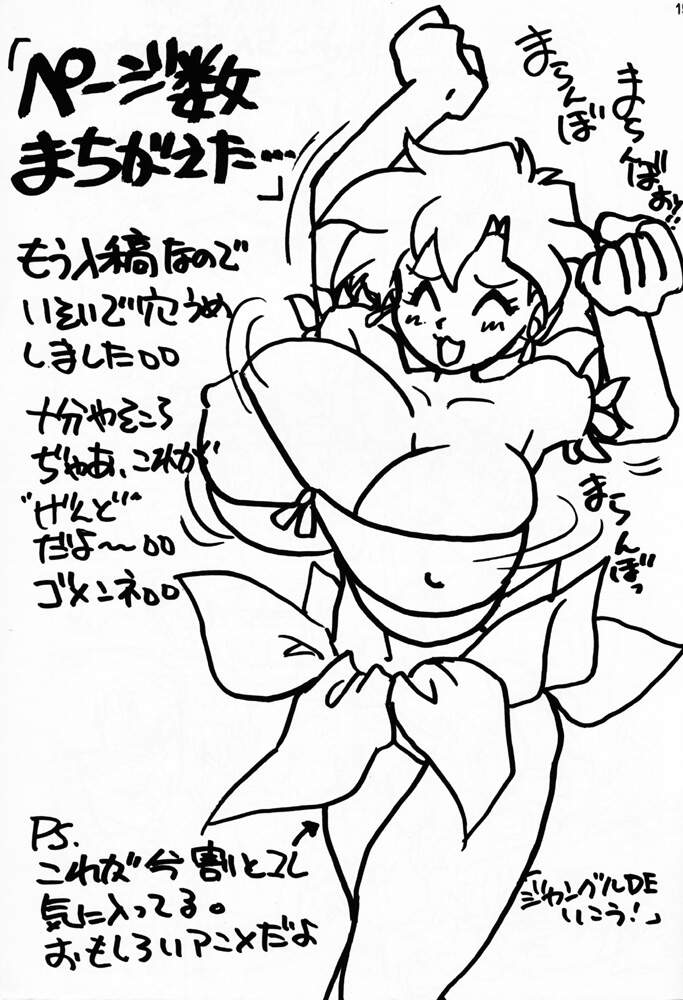 「ページ数
まちがえた…」
もう入稿なので
いそいで穴うめ
しました。。
十分やそころ
ぢゃあ、これが
"げんど"
だよ〜。。
ゴメンネ。。
まらんぼ
まらんばぉッ!!
まらんぼっ
P.S.
これが今割とコレ
気に入ってる。
おもしろいアニメだよ
「ジャングルDE
いこう!」